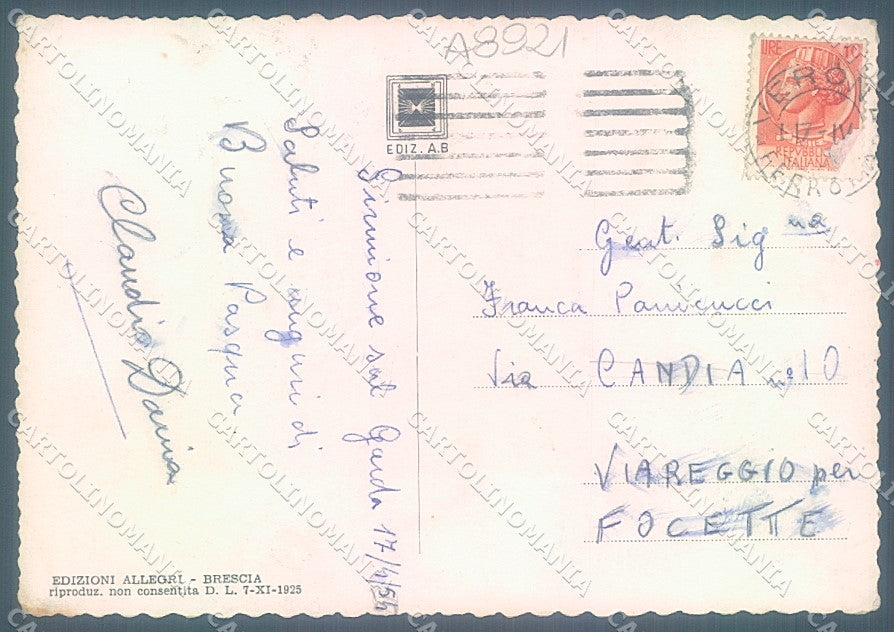 A8921
EDIZ. A.B
LIRE 10
REPVBBLICA
ITALIANA
Sirmione sul Garda 17/4/54
Saluti e auguri di
Buona Pasqua
Claudio Daria
Gent. Sig na
Franca
Via CANDIA nº 10
VIAREGGIO per
FOCETTE
EDIZIONI ALLEGRI - BRESCIA
riproduz. non consentita D. L. 7-XI-1925
CARTOLINOMANIA